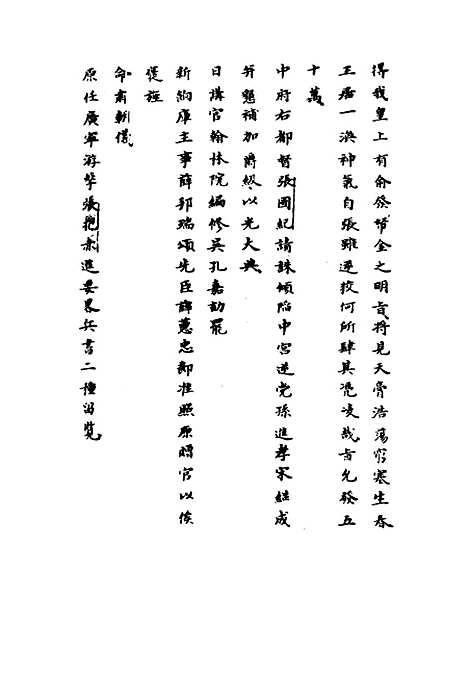 得我皇上有俞發帑金之明旨將見天膏浩蕩窮寒生春
王居一渙神氣自張雖逆狡何所肆其憑凌哉旨允發五
十萬
中府右都督張國紀請誅傾陷中宮逆党孫進孝宋繼成
并懇補加爵級以光大典
日講官翰林院編修吳孔嘉劾罷
新餉庫主事薛邦瑞頌先臣薛蕙忠鄰准照原贈官以俟
褒誥
命肅朝儀
原任廣寧游擊張抱赤進要畧兵書二種留覽